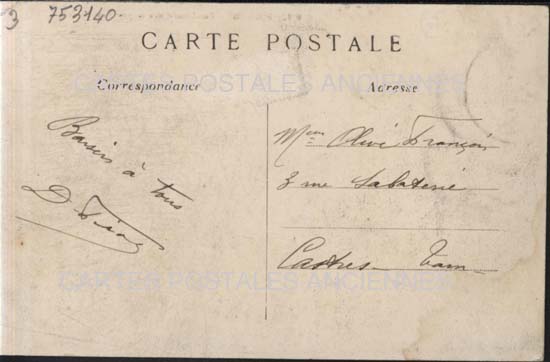 3 753140.
CARTE POSTALE
CARTES POSTALES ANCIENNES
Correspondance
Adresse
Baisers à tous
D.
Olive François
3 rue Sabaterie
Castres Tarn
CARTES POSTALES ANCIENNES